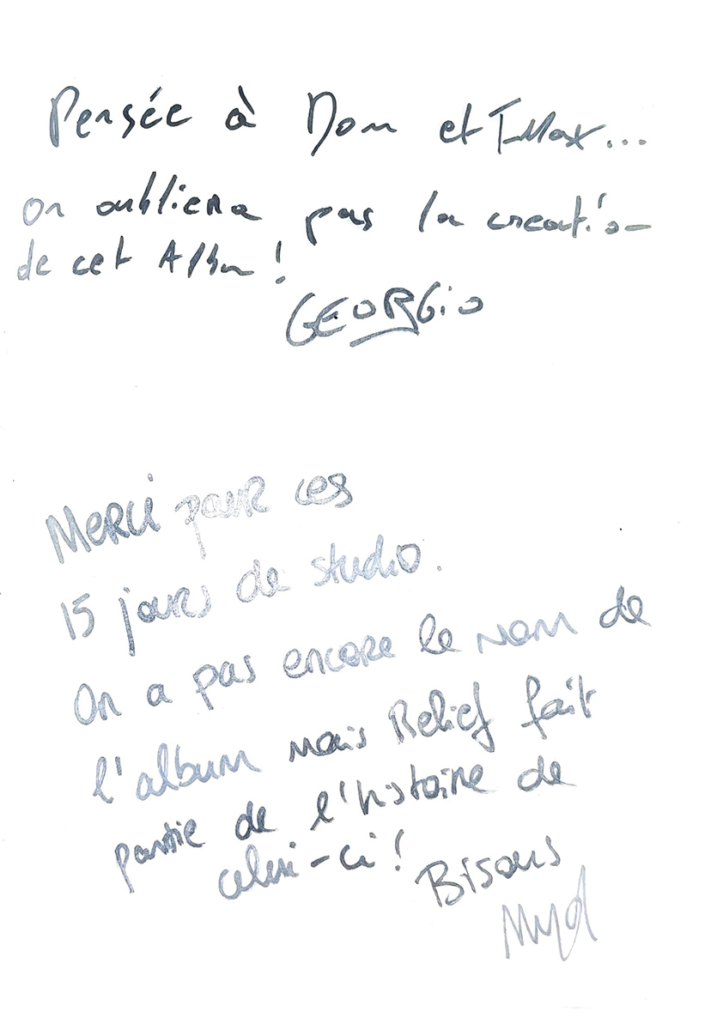 Pensée à Dom et T-Max...
on oubliera pas la création
de cet Album !
GEORGiO
Merci pour ces
15 jours de studio.
On a pas encore le nom de
l'album mais Relief fait
partie de l'histoire de
celui-ci !
Bisous
Myd